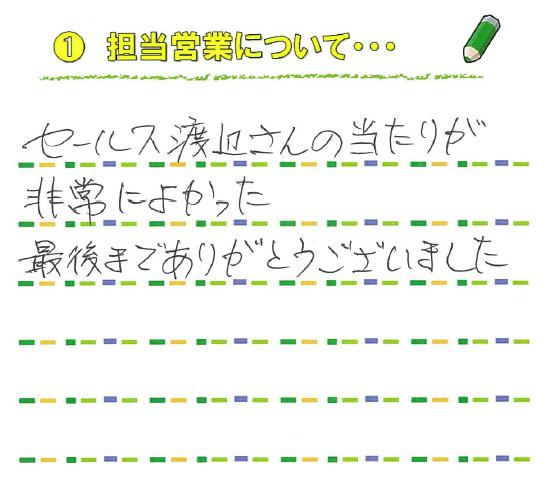 ① 担当営業について・・・
セールス渡辺さんの当たりが
非常によかった
最後までありがとうございました